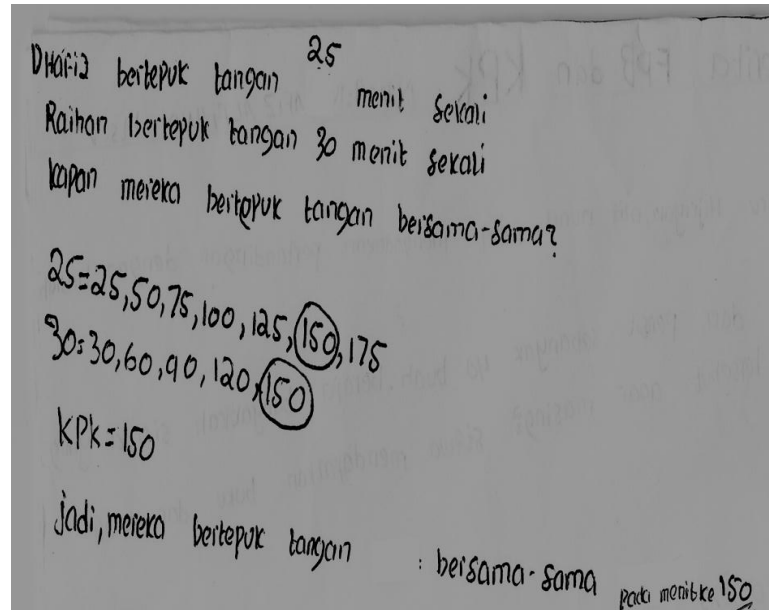 Dhafia bertepuk tangan 25 menit sekali
Raihan bertepuk tangan 30 menit sekali
kapan mereka bertepuk tangan bersama-sama?
25=25,50,75,100,125,150,175
30=30,60,90,120,150
KPK=150
jadi, mereka bertepuk tangan : bersama-sama pada menit ke 150